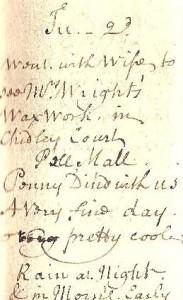 Tu. 23.
Went with Wife to
see Mrs. Wright's
Wax Work in
Chidley Court
Pell Mall.
Penny Din'd with us
A very fine day.
pretty cool.
Rain at Night
& in Morng. Early